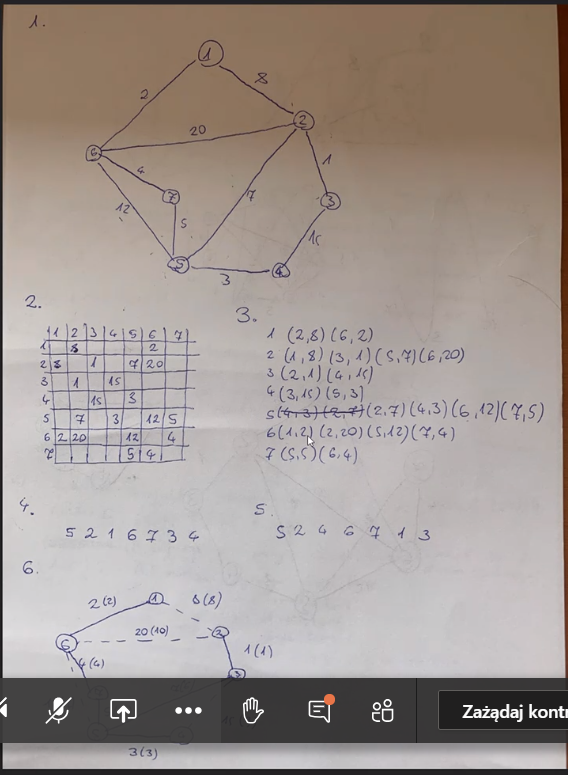 1.
1
2
8
6
20
2
4
7
1
12
7
5
3
15
5
3
4
2.
3.
1 2 3 4 5 6 7
1 8 2
2 8 1 7 20
3 1 15
4 15 3
5 7 3 12 5
6 2 20 12 4
7 5 4
1 (2,8) (6,2)
2 (1,8) (3,1) (5,7) (6,20)
3 (2,1) (4,15)
4 (3,15) (5,3)
5 (4,3) (2,7) (2,7) (4,3) (6,12) (7,5)
6 (1,2) (2,20) (5,12) (7,4)
7 (5,5) (6,4)
4.
5.
5 2 1 6 7 3 4
5 2 4 6 7 1 3
6.
2(2) 1 8(8)
6 20(10) 2
4(4) 1(1)
3
Zażądaj kont
3(3)